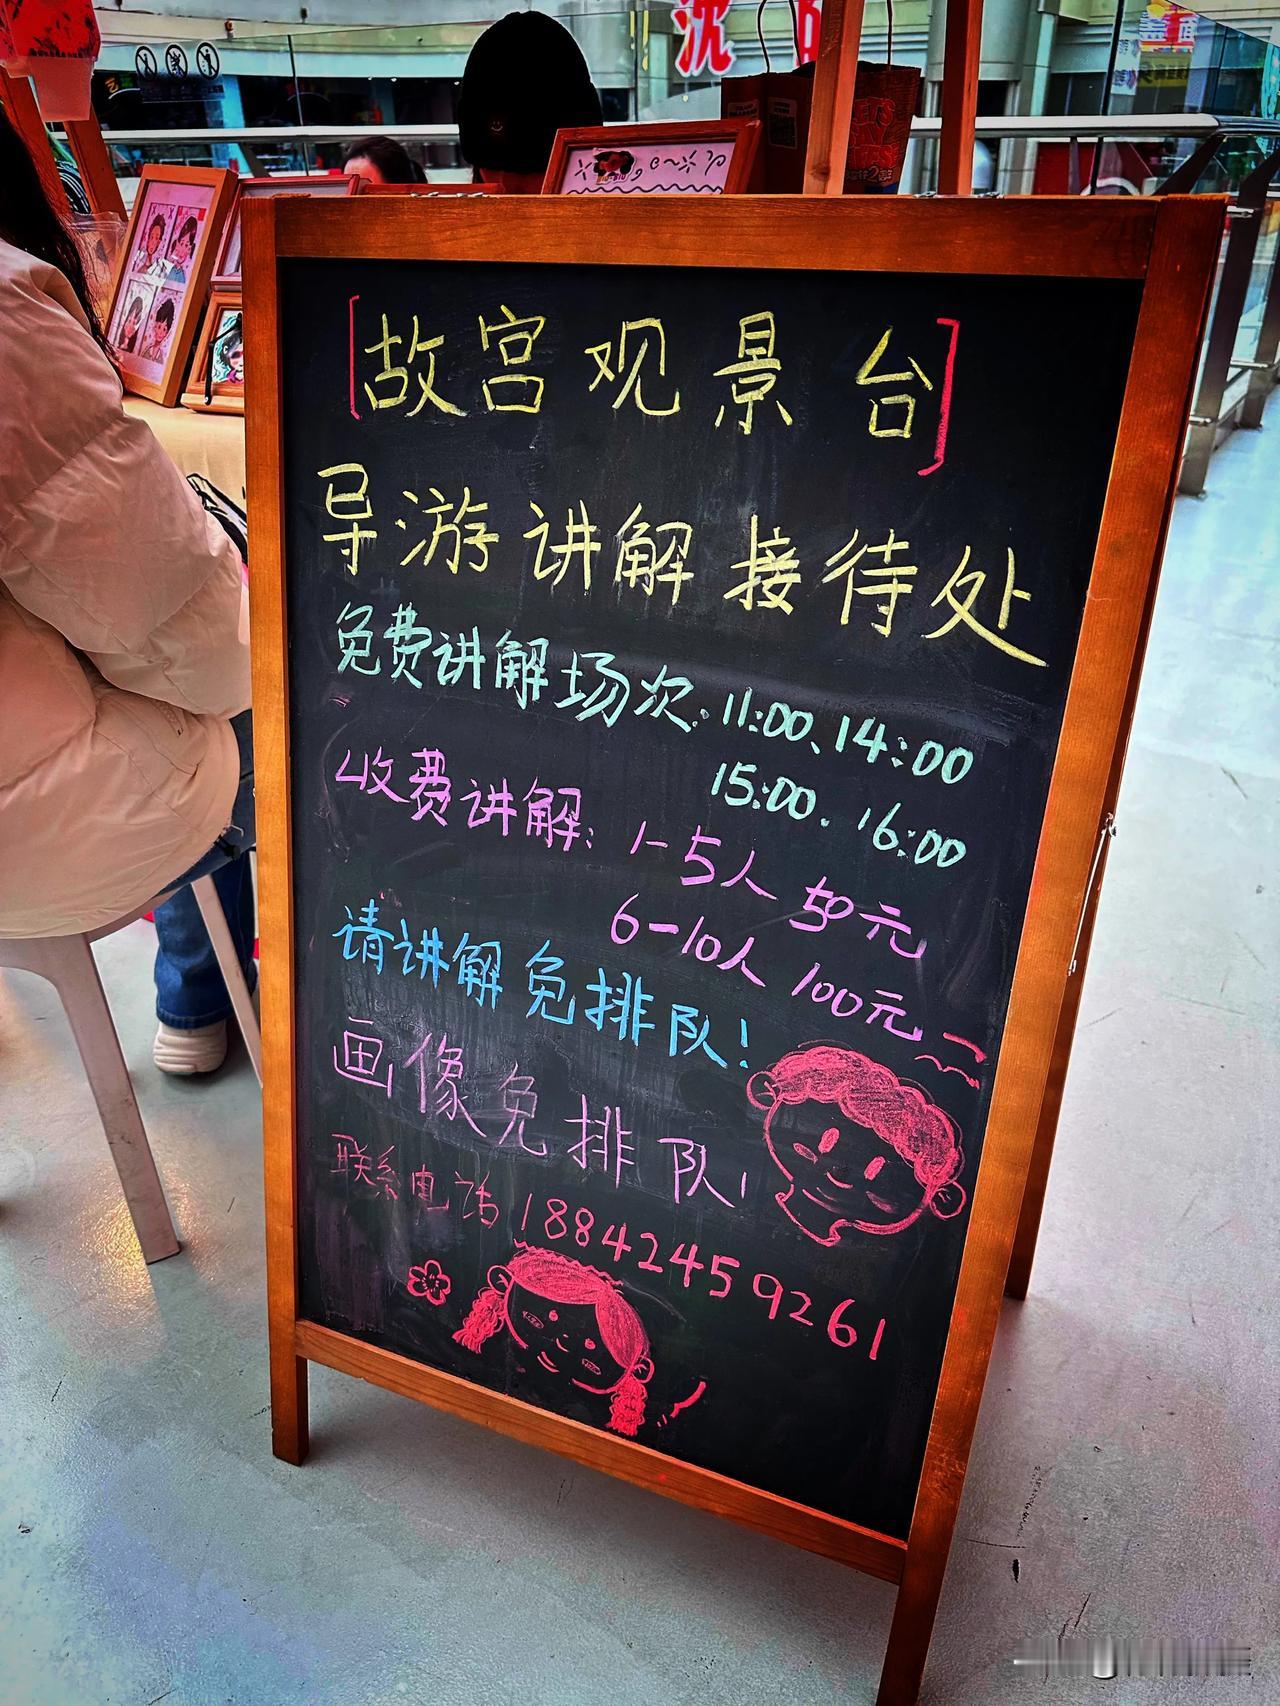 沈
[故宫观景台]
导游讲解接待处
免费讲解场次:11:00、14:00
15:00、16:00
收费讲解：1-5人 50元
6-10人 100元
请讲解免排队！
画像免排队！
联系电话 18842459261